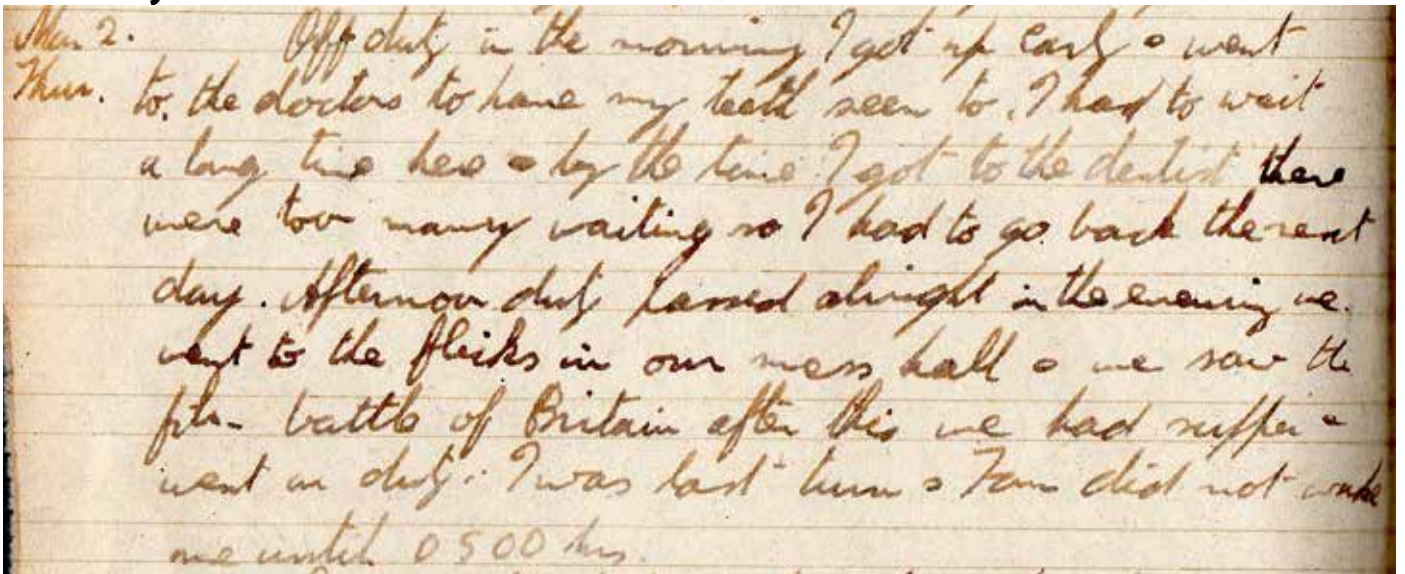 Mar 2. Off duty in the morning I got up early & went
Thur. to the doctors to have my teeth seen to. I had to wait
a long time here & by the time I got to the dentist there
were too many waiting so I had to go back the next
day. Afternoon duty passed alright in the evening we
went to the flicks in our mess hall & we saw the
film battle of Britain after this we had supper &
went on duty. I was last turn & Tam did not wake
me until 0500 hrs.